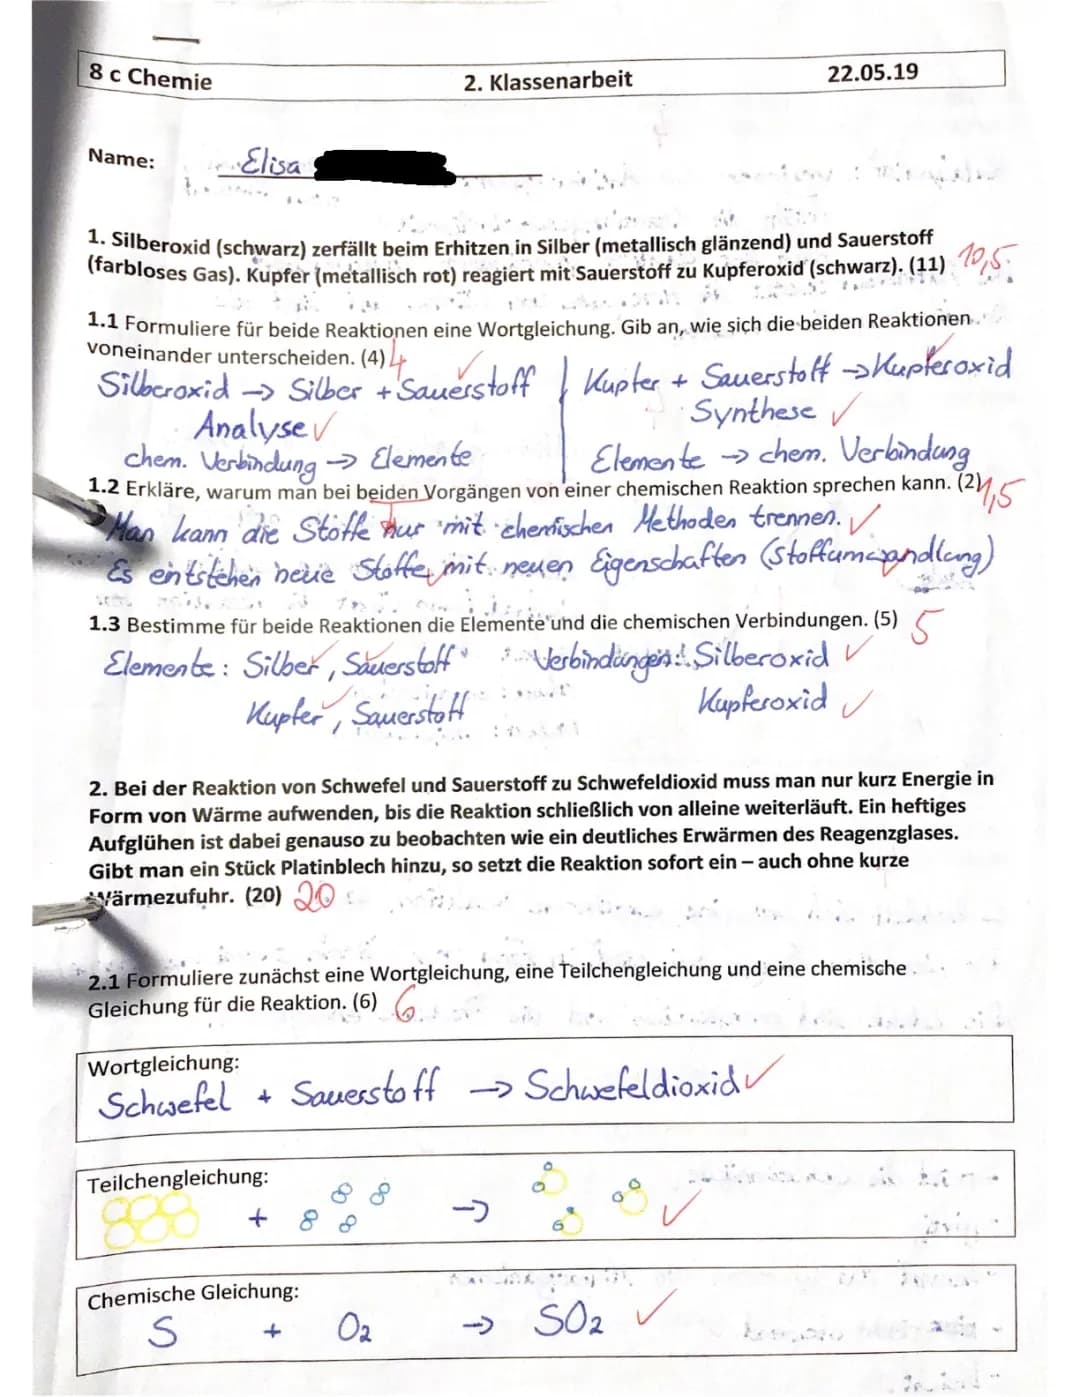 8 c Chemie 2. Klassenarbeit 22.05.19
Name: Elisa
1. Silberoxid (schwarz) zerfällt beim Erhitzen in Silber (metallisch glänzend) und Sauerstoff
(farbloses Gas). Kupfer (metallisch rot) reagiert mit Sauerstoff zu Kupferoxid (schwarz). (11) 10,5
1.1 Formuliere für beide Reaktionen eine Wortgleichung. Gib an, wie sich die beiden Reaktionen
voneinander unterscheiden. (4) 4
Silberoxid → Silber + Sauerstoff
Analyse
chem. Verbindung → Elemente
Kupfer + Sauerstoff → Kupferoxid
Synthese
Elemente → chem. Verbindung
1.2 Erkläre, warum man bei beiden Vorgängen von einer chemischen Reaktion sprechen kann. (2) 1,5
Man kann die Stoffe nur mit chemischen Methoden trennen.
Es entstehen neue Stoffe mit neuen Eigenschaften (Stoffumwandlung)
1.3 Bestimme für beide Reaktionen die Elemente und die chemischen Verbindungen. (5) 5
Elemente: Silber, Sauerstoff Verbindungen: Silberoxid
Kupfer, Sauerstoff Kupferoxid
2. Bei der Reaktion von Schwefel und Sauerstoff zu Schwefeldioxid muss man nur kurz Energie in
Form von Wärme aufwenden, bis die Reaktion schließlich von alleine weiterläuft. Ein heftiges
Aufglühen ist dabei genauso zu beobachten wie ein deutliches Erwärmen des Reagenzglases.
Gibt man ein Stück Platinblech hinzu, so setzt die Reaktion sofort ein – auch ohne kurze
Wärmezufuhr. (20) 20
2.1 Formuliere zunächst eine Wortgleichung, eine Teilchengleichung und eine chemische
Gleichung für die Reaktion. (6) 6
Wortgleichung:
Schwefel + Sauerstoff → Schwefeldioxid
Teilchengleichung:
+ →
Chemische Gleichung:
S + O2 → SO2